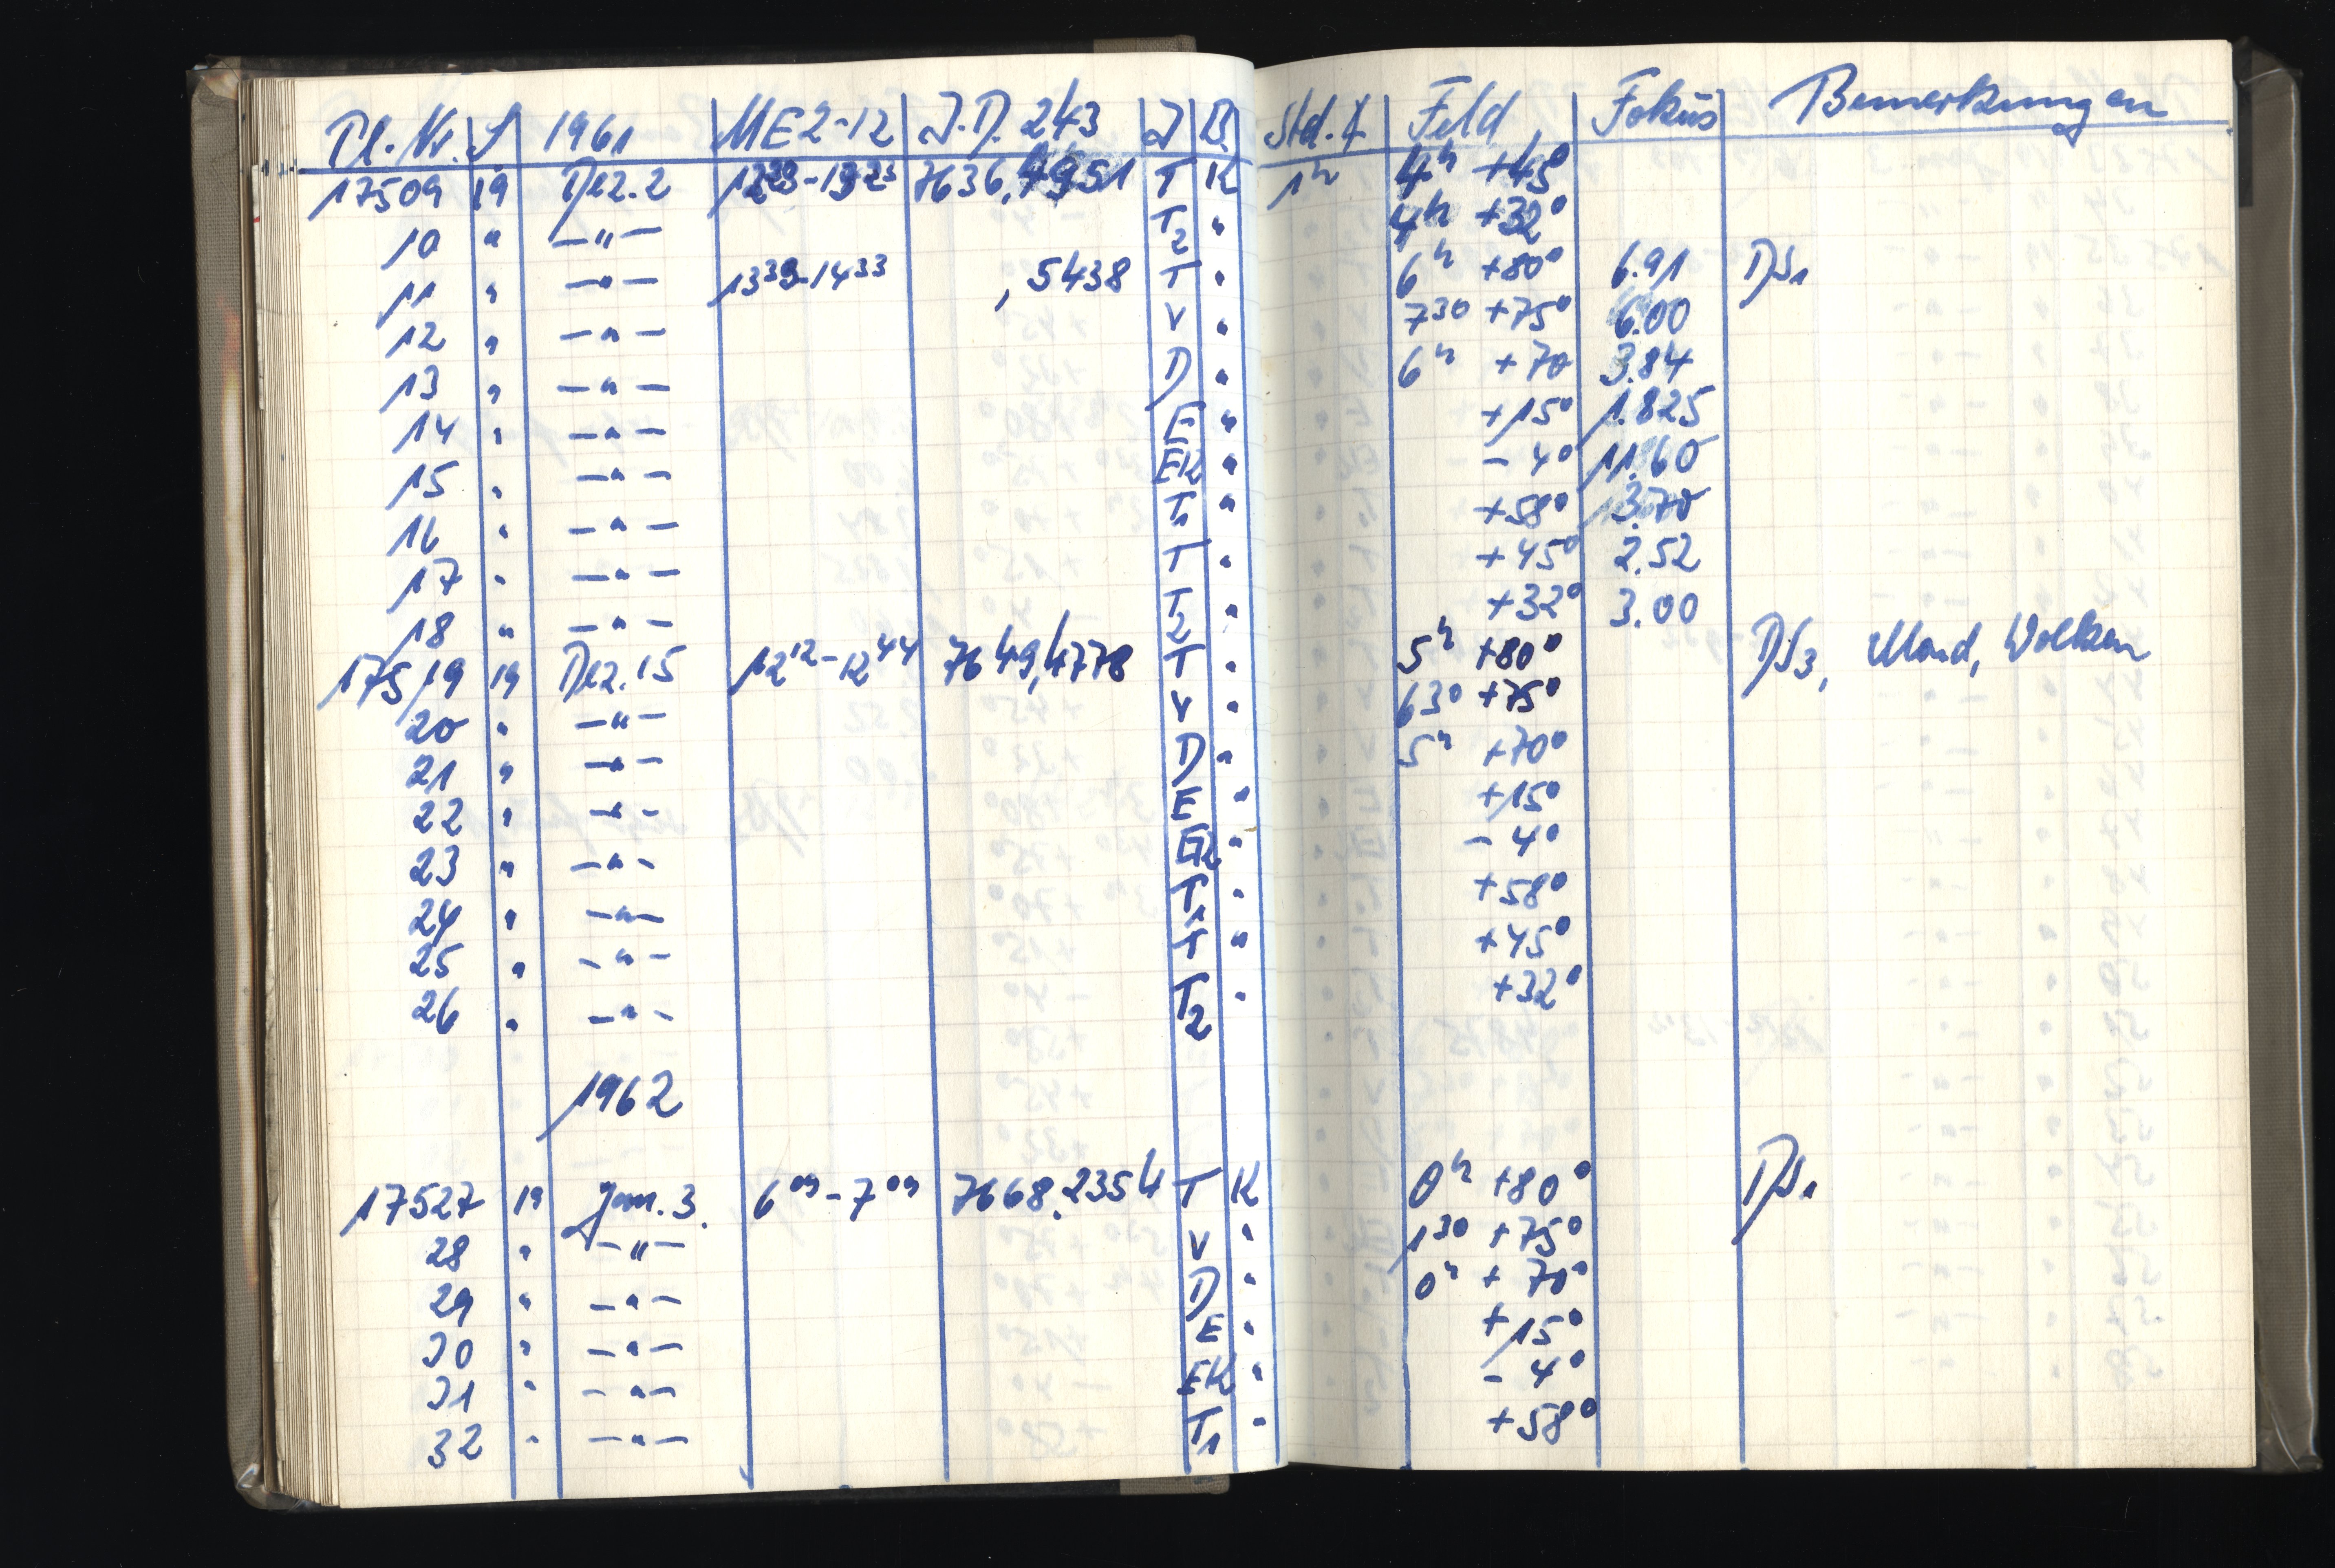 Pl. Nr. S 1961 MEZ-12 J.D. 243 J B. Std.∢ Feld Fokus Bemerkungen
17509 19 Dez. 2 7636, T K 1h 4h +45°
10 " —"— T2 " 4h +32°
11 " —"— 13 39-14 33 ,5438 T " 6h +80° 6.91 DS1
12 " —"— V " 7 30 +75° 6.00
13 " —"— D " 6h +70 3.84
14 " —"— E " +15° 1.825
15 " —"— EK " -4° 11.60
16 " —"— T1 " +58° 3.70
17 " —"— T " +45° 2.52
18 " —"— T2 " +32° 3.00
17519 19 Dez. 15 12 12-12 44 7649,4778 T " 5h +80° DS3, Mond, Wolken
20 " —"— V " 6 30 +75°
21 " —"— D " 5h +70°
22 " —"— E " +15°
23 " —"— EK " -4°
24 " —"— T1 " +58°
25 " —"— T " +45°
26 " —"— T2 " +32°
1962
17527 19 Jan. 3. 6 09-7 09 7668.2354 T K 0h +80° DS1
28 " —"— V " 1 30 +75°
29 " —"— D " 0h +70°
30 " —"— E " +15°
31 " —"— EK " -4°
32 " —"— T1 " +58°